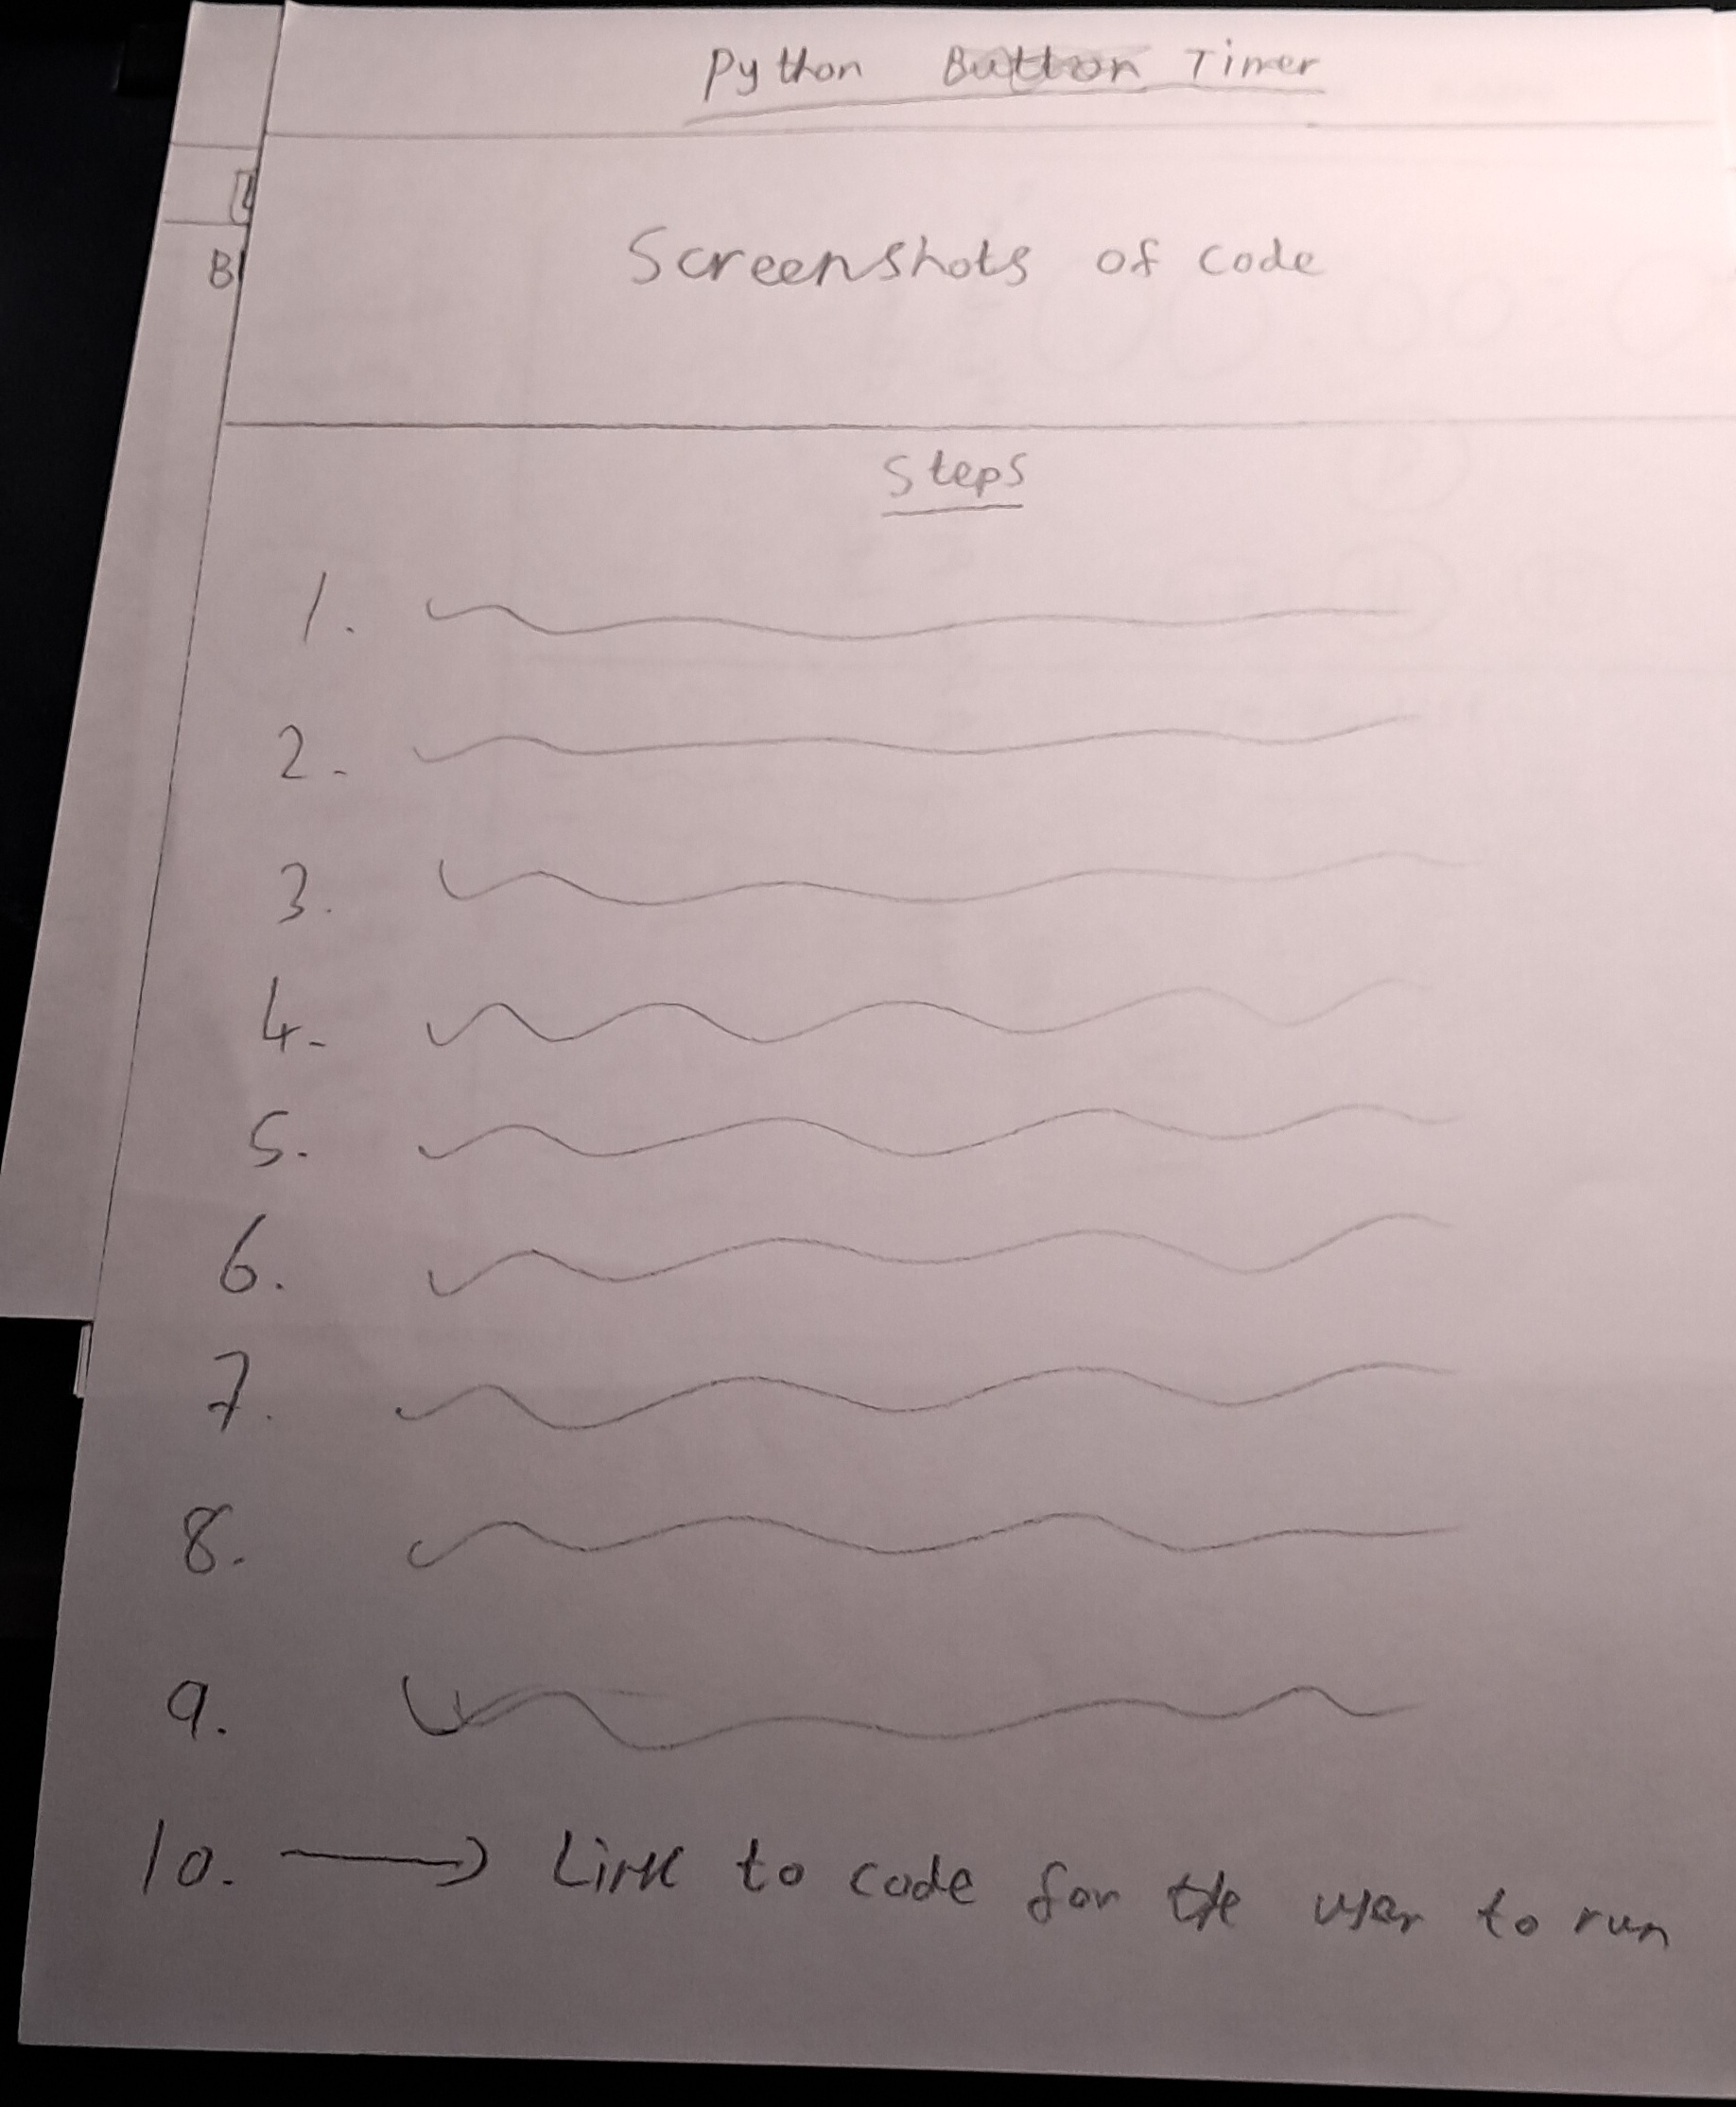 Python Button Timer
Screenshots of code
B
Steps
1.
2.
3.
4.
5.
6.
7.
8.
9.
10. → Link to code for the user to run